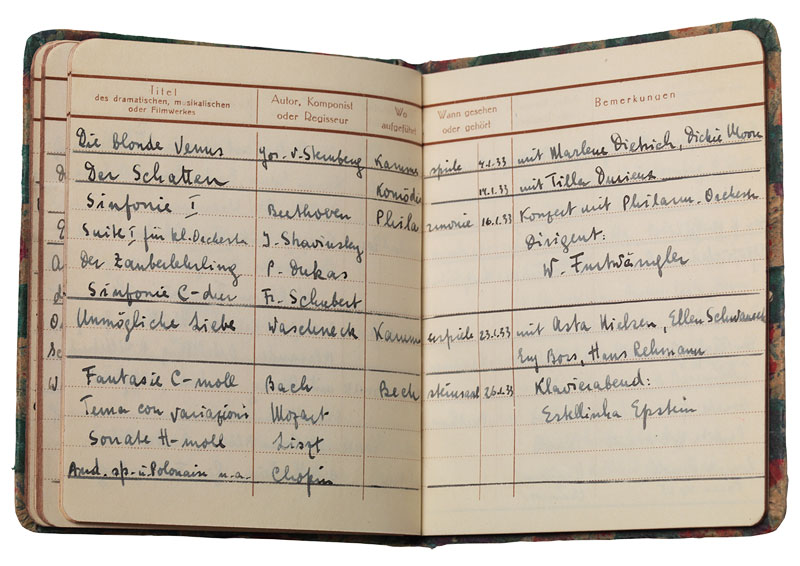 Titel des dramatischen, musikalischen oder Filmwerkes
Autor, Komponist oder Regisseur
Wo aufgeführt
Wann gesehen oder gehört
Bemerkungen
Die blonde Venus Jos. v. Sternberg Kammerspiele 7.1.33 mit Marlene Dietrich, Dickie Moore
Der Schatten Komödie 14.1.33 mit Tilla Durieux
Sinfonie I Beethoven Philharmonie 16.1.33 Konzert mit Philharm. Orchester
Suite I für kl. Orchester J. Stravinsky Dirigent:
Der Zauberlehrling P. Dukas W. Furtwängler
Sinfonie C-dur Fr. Schubert
Unmögliche Liebe Waschneck Kammerspiele 23.1.33 mit Asta Nielsen, Ellen Schwanecke
Ery Bos, Hans Rehmann
Fantasie C-moll Bach Bechsteinsaal 26.1.33 Klavierabend:
Tema con variazioni Mozart Estellinka Epstein
Sonate H-moll Liszt
And. sp. u. Polonaise u.a. Chopin